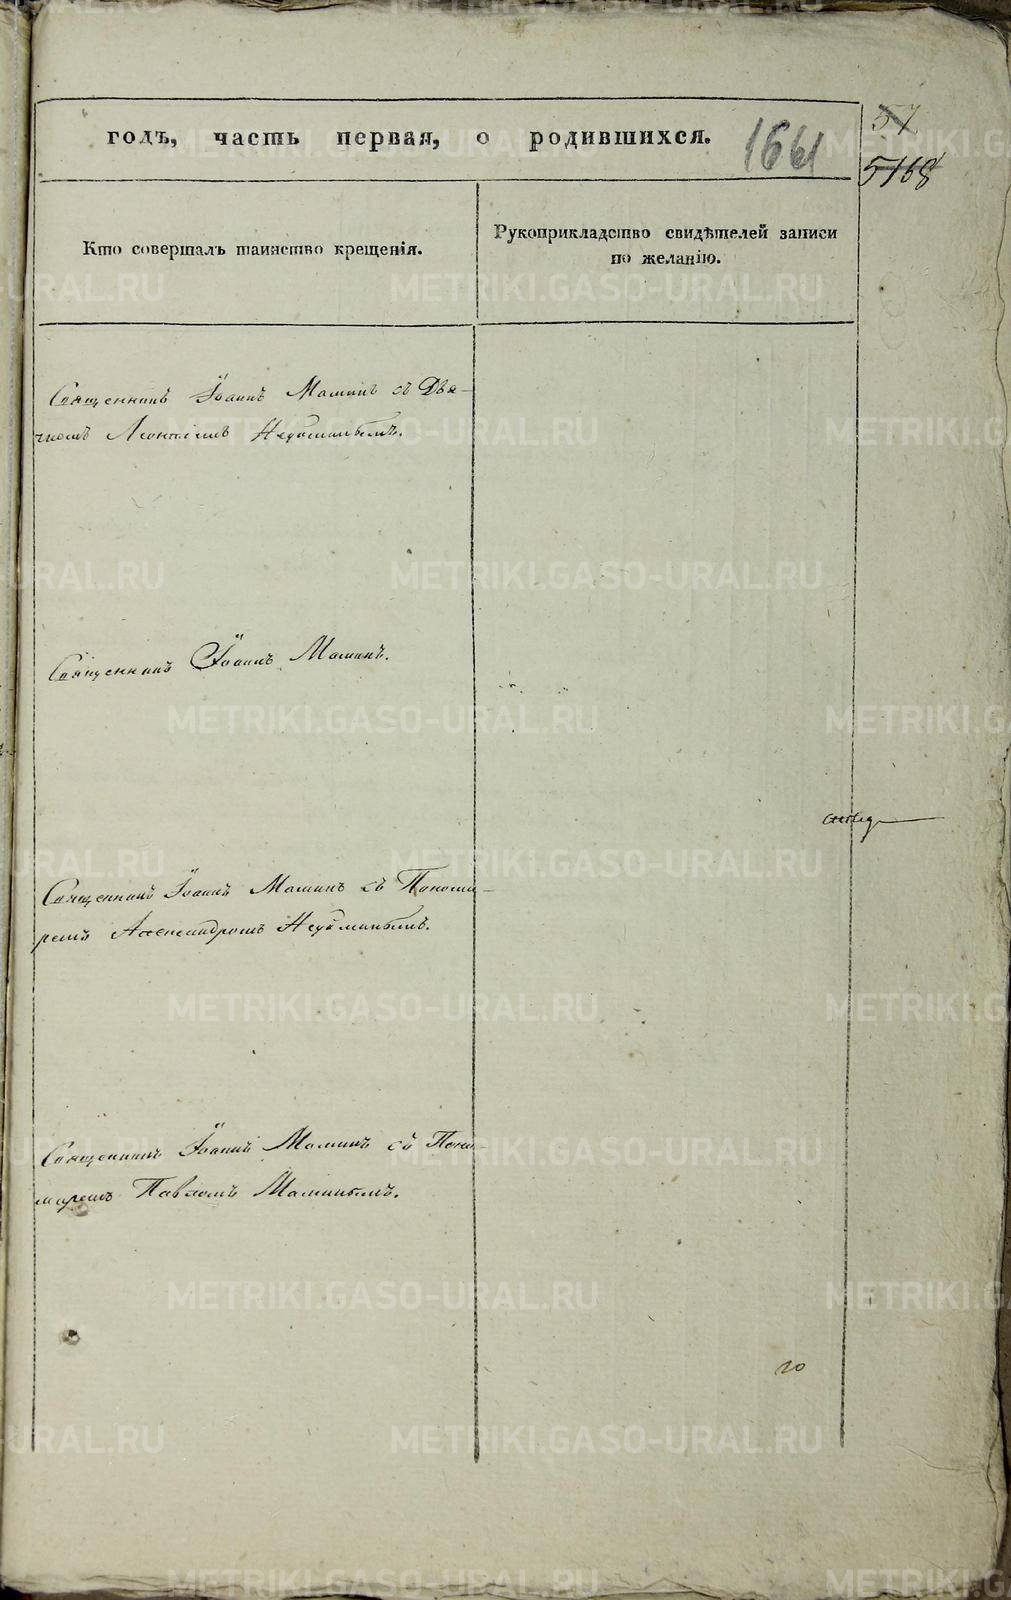 годъ, часть первая, о родившихся.
1661
57
5168
Кто совершалъ таинство крещенія.
Рукоприкладство свидѣтелей записи
по желанію.
Священникъ Іоаннъ Маминъ съ Дья-
чкомъ Леонтіемъ Неуйминымъ.
Священникъ Іоаннъ Маминъ.
Священникъ Іоаннъ Маминъ съ Понома-
ремъ Александромъ Неуйминымъ.
Священникъ Іоаннъ Маминъ съ Поно-
маремъ Павломъ Маминымъ.
METRIKI.GASO-URAL.RU